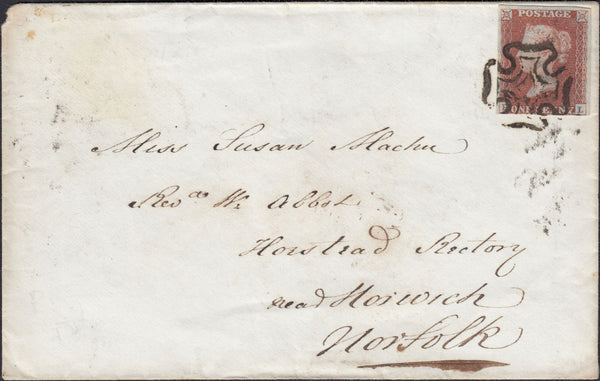 POSTAGE
ONE PENNY
L
Miss Susan Machu
Revd W. Abbot
Horstead Rectory
near Norwich
Norfolk